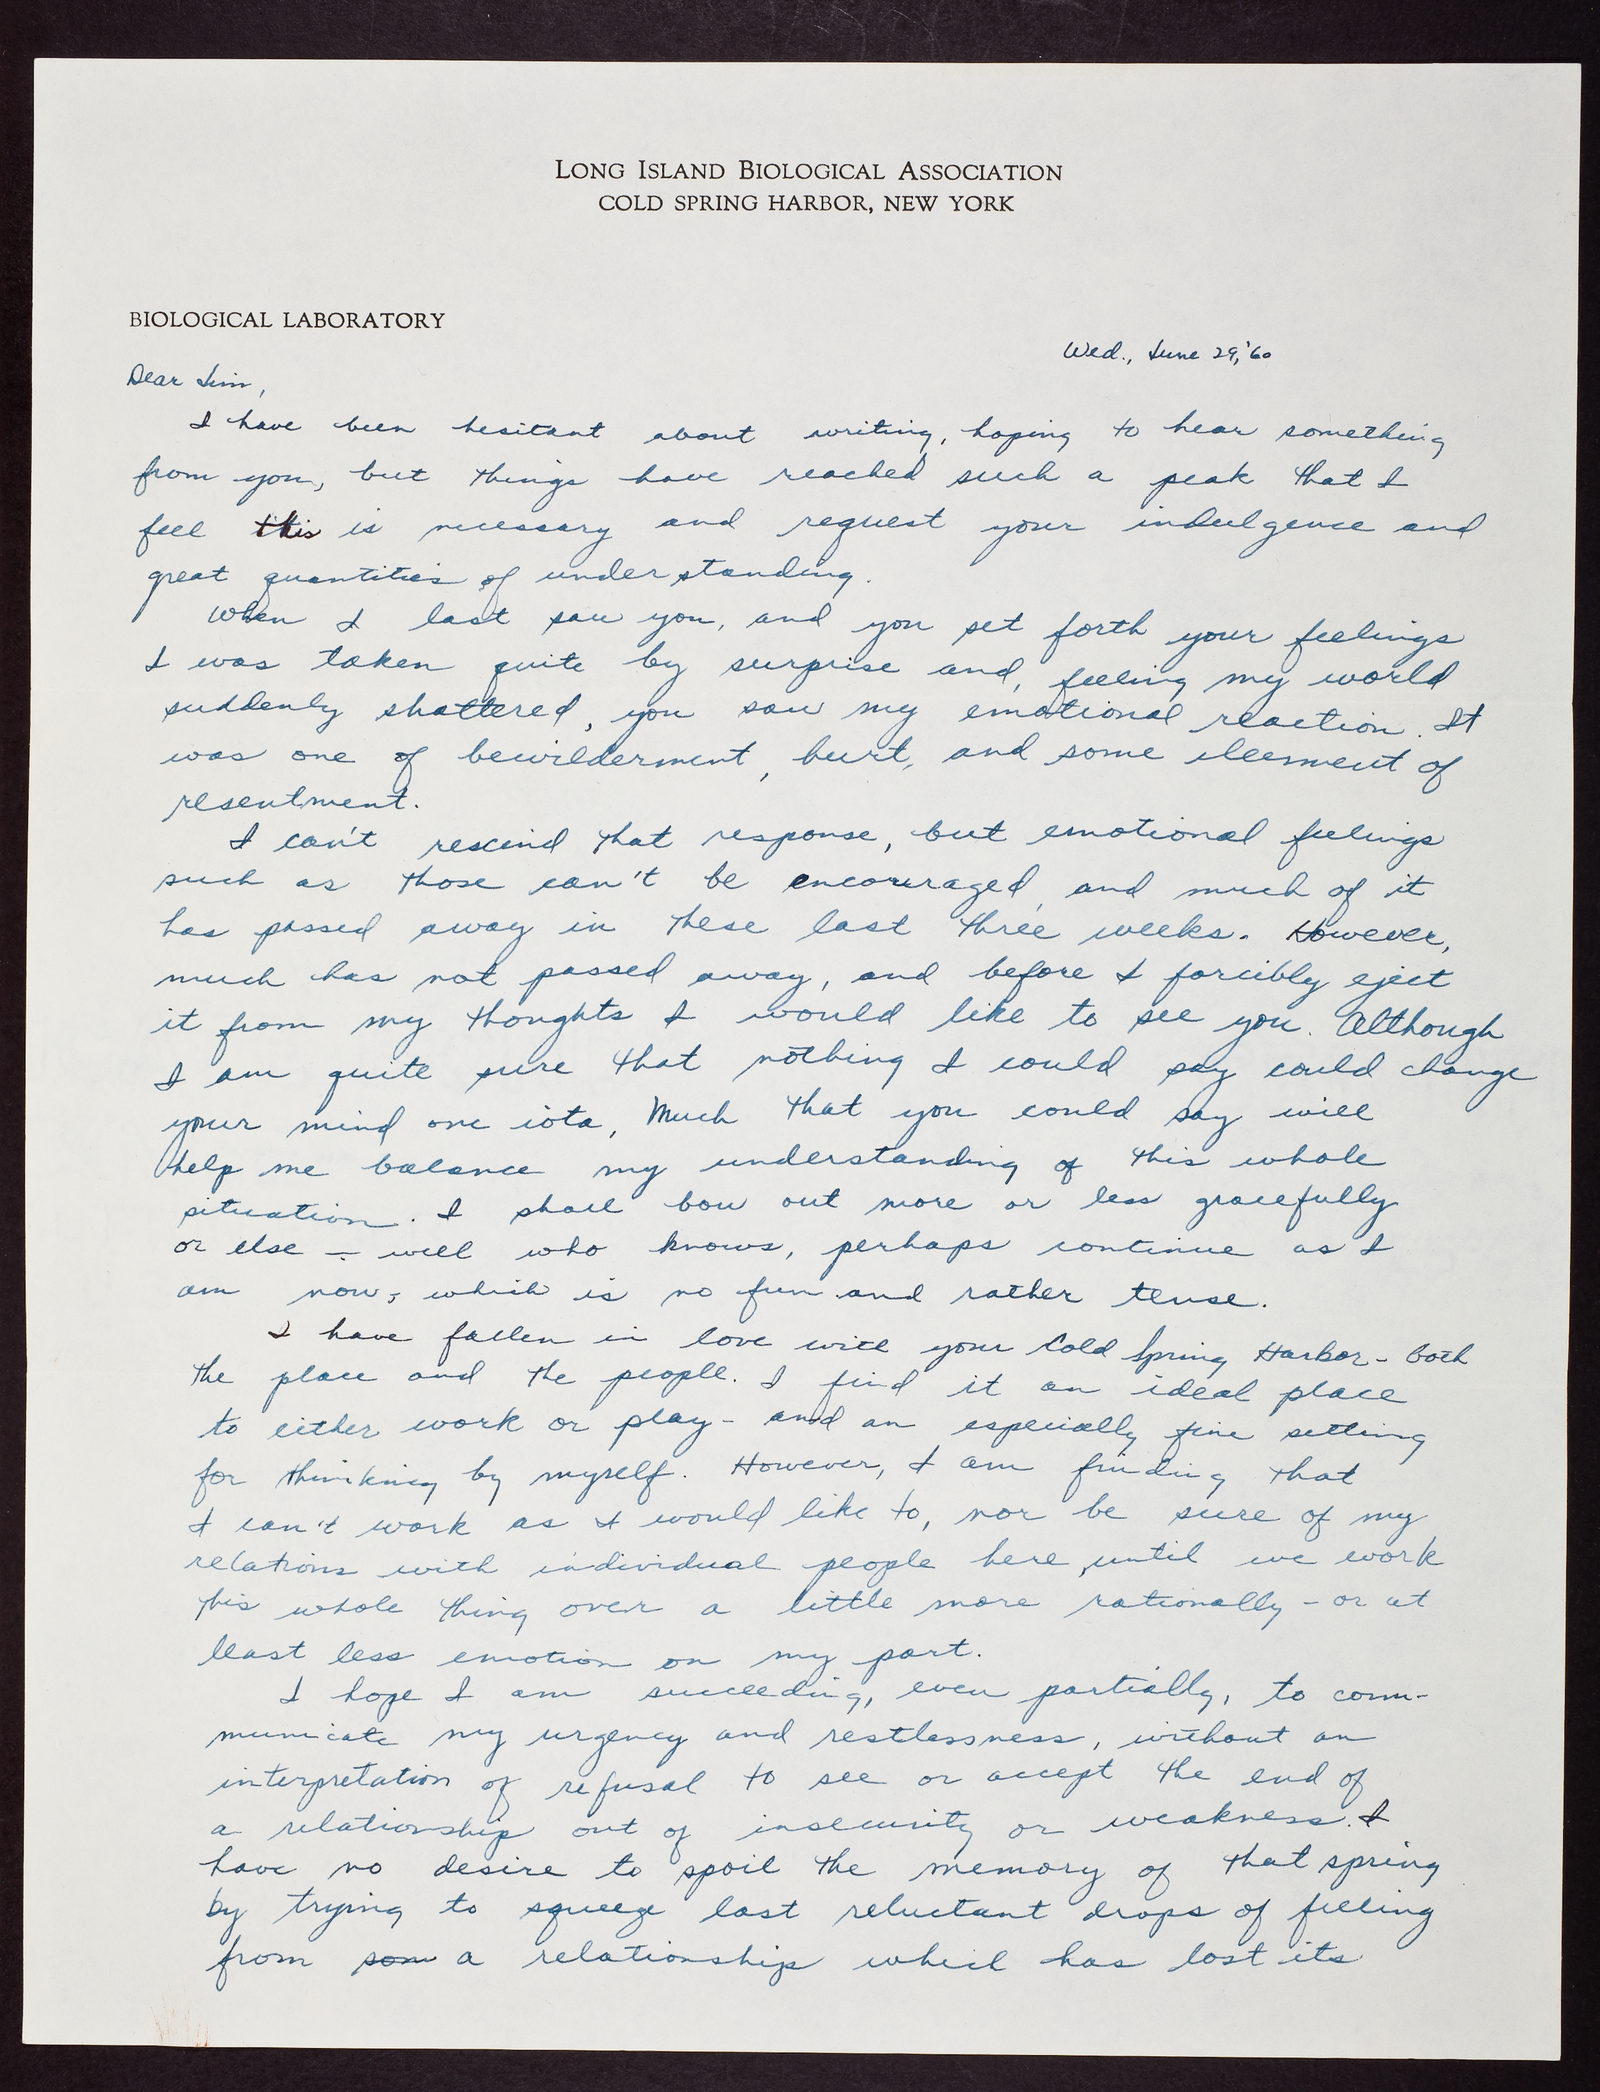 LONG ISLAND BIOLOGICAL ASSOCIATION
COLD SPRING HARBOR, NEW YORK
BIOLOGICAL LABORATORY
Wed., June 29, '60
Dear Jim,
I have been hesitant about writing, hoping to hear something
from you, but things have reached such a peak that I
feel this is necessary and request your indulgence and
great quantities of understanding.
When I last saw you, and you set forth your feelings
I was taken quite by surprise and, feeling my world
suddenly shattered, you saw my emotional reaction. It
was one of bewilderment, hurt, and some elesment of
resentment.
I can't rescind that response, but emotional feelings
such as those can't be encouraged, and much of it
has passed away in these last three weeks. However,
much has not passed away, and before I forcibly eject
it from my thoughts I would like to see you. Although
I am quite sure that nothing I could say could change
your mind one iota, Much that you could say will
help me balance my understanding of this whole
situation. I shall bow out more or less gracefully
or else - well who knows, perhaps continue as I
am now, which is no fun and rather tense.
I have fallen in love with your Cold Spring Harbor - both
the place and the people. I find it an ideal place
to either work or play - and an especially fine setting
for thinking by myself. However, I am finding that
I can't work as I would like to, nor be sure of my
relations with individual people here, until we work
this whole thing over a little more rationally - or at
least less emotion on my part.
I hope I am succeeding, even partially, to com-
municate my urgency and restlessness, without an
interpretation of refusal to see or accept the end of
a relationship out of insecurity or weakness. I
have no desire to spoil the memory of that spring
by trying to squeeze last reluctant drops of feeling
from som a relationship which has lost its